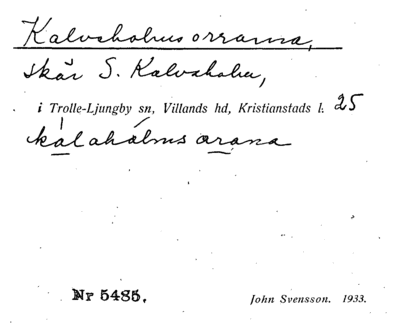 Kalvsholmsorrarna,
skär S. Kalvsholm,
i Trolle-Ljungby sn, Villands hd, Kristianstads l. 25
kalahòlmsarana
Nr 5485.
John Svensson. 1933.